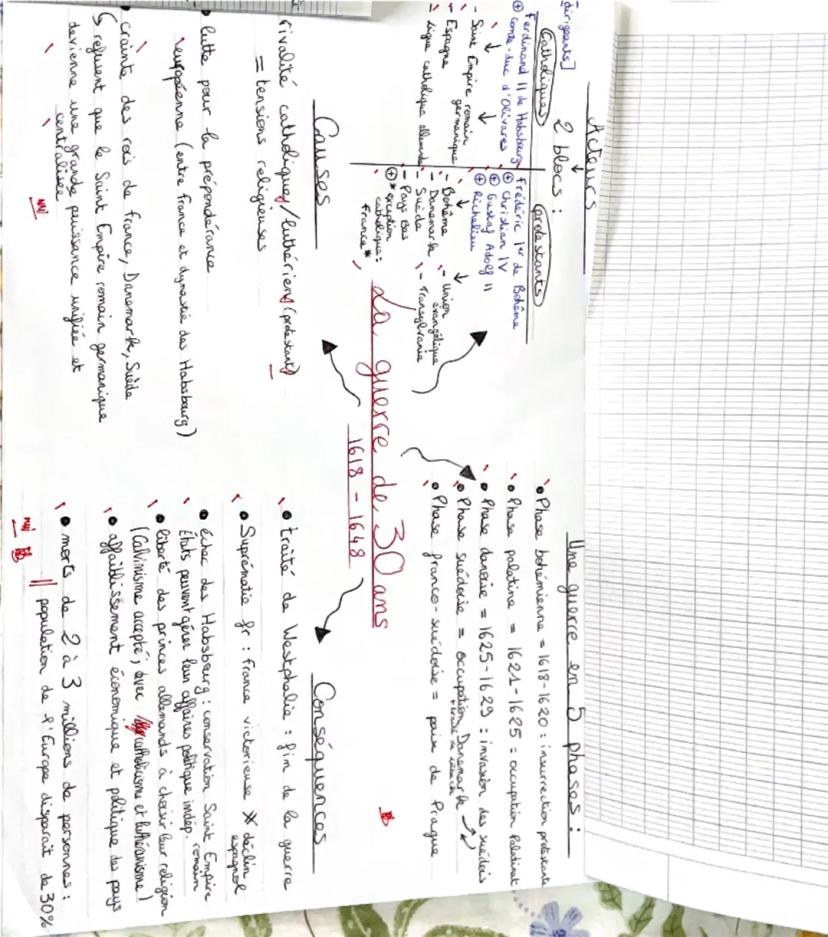 La guerre de 30 ans
1618 - 1648
Acteurs
2 blocs :
[dirigeants]
Catholiques
Ferdinand II de Habsbourg
⊕ Comte-duc d'Olivares
- Saint Empire romain
germanique
- Espagne
- Ligue catholique allemande
protestants
Frédéric 1er de Bohême
⊕ Christian IV
⊕ Gustaf Adolf II
⊕ Richelieu
- Bohême
- Danemark
- Suède
- Pays Bas
⊕ * exception
catholique :
France *
- Union
évangélique
- Transylvanie
Une guerre en 5 phases :
• Phase bohémienne = 1618-1620 : insurrection protestante
• Phase palatine = 1621-1625 : occupation Palatinat
• Phase danoise = 1625-1629 : invasion des suédois
• Phase suédoise = occupation Danemark
• Phase franco-suédoise = paix de Prague
Causes
rivalité catholiques/luthériens (protestants)
= tensions religieuses
• lutte pour la prépondérance
européenne (entre France et dynastie des Habsbourg)
• crainte des rois de France, Danemark, Suède
↳ refusent que le Saint Empire romain germanique
devienne une grande puissance unifiée et
centralisée
Conséquences
• traité de Westphalie : fin de la guerre
• Suprématie fr : France victorieuse X déclin
espagnol
• échec des Habsbourg : conservation Saint Empire
romain
États peuvent gérer leurs affaires politique indép.
• liberté des princes allemands à choisir leur religion
(Calvinisme accepté ; avec catholicisme et luthéranisme)
• affaiblissement économique et politique des pays
• morts de 2 à 3 millions de personnes :
|| population de l'Europe disparait de 30%